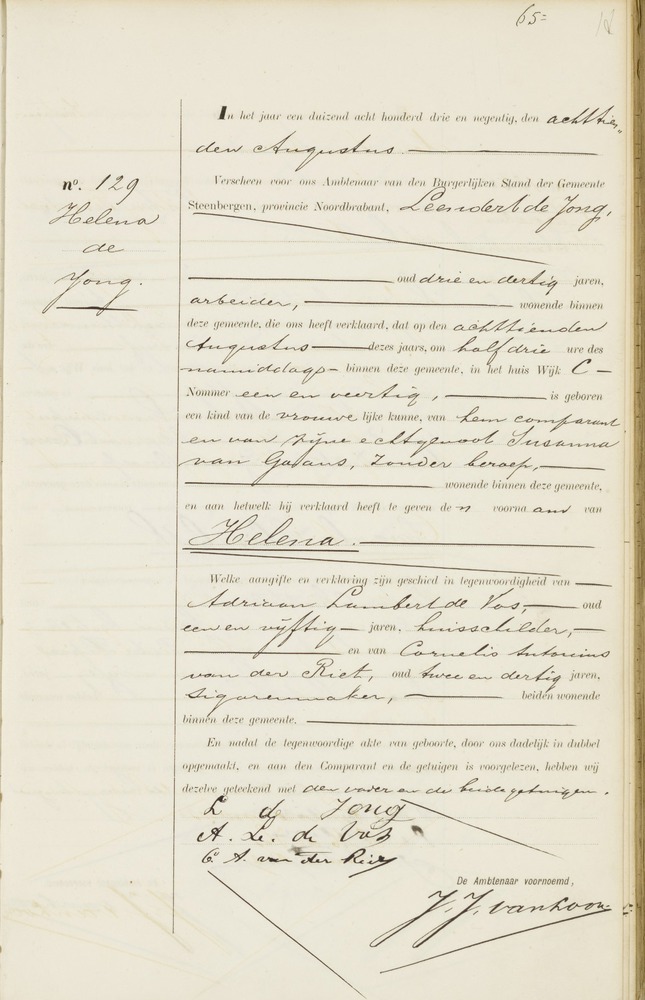 65=
In het jaar een duizend acht honderd drie en negentig, den achttien„
den Augustus
nº. 129
Helena
de
Jong.
Verscheen voor ons Ambtenaar van den Burgerlijken Stand der Gemeente
Steenbergen, provincie Noordbrabant, Leendert de Jong,
oud drie en dertig jaren,
arbeider, wonende binnen
deze gemeente, die ons heeft verklaard, dat op den achttienden
Augustus dezes jaars, om half drie ure des
namiddags binnen deze gemeente, in het huis Wijk C
Nommer een en veertig, is geboren
een kind van de vrouwelijke kunne, van hem comparant
en van zijne echtgenoot Susanna
van Gaans, zonder beroep,
wonende binnen deze gemeente,
en aan hetwelk hij verklaard heeft te geven den voornaam van
Helena.
Welke aangifte en verklaring zijn geschied in tegenwoordigheid van
Adriaan Lambert de Vos, oud
een en vijftig jaren, huisschilder,
en van Cornelis Antonius
van der Riet, oud twee en dertig jaren,
sigarenmaker, beiden wonende
binnen deze gemeente.
En nadat de tegenwoordige akte van geboorte, door ons dadelijk in dubbel
opgemaakt, en aan den Comparant en de getuigen is voorgelezen, hebben wij
dezelve geteekend met den vader en de beide getuigen.
L de Jong
A. L. de Vos
C. A. van der Riet
De Ambtenaar voornoemd,